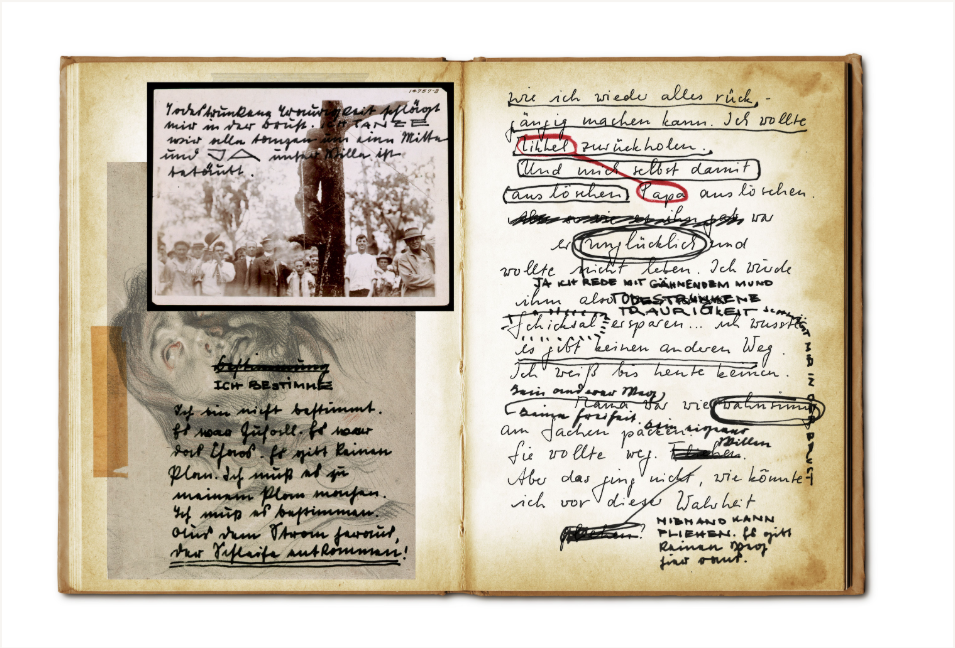 Todestrunkene Traurigkeit schlägt
mir in der Brust. ICH TANZE
wir alle tanzen um eine Mitte
und JA unser Wille ist
betäubt.
Bestimmung
ICH BESTIMME
Ich bin nicht bestimmt.
Es war Zufall. Es war
das Chaos. Es gibt keinen
Plan. Ich muß es zu
meinem Plan machen.
Ich muß es bestimmen.
Aus dem Strom heraus,
der Schleife entkommen!
wie ich wieder alles rück-
gängig machen kann. Ich wollte
zurückholen.
Und mich selbst damit
auslöschen Papa auslöschen.
war
er unglücklich und
wollte nicht leben. Ich würde
JA ICH REDE MIT GÄHNENDEM MUND
ihm also TODESTRUNKENE
TRAURIGKEIT schlägt MIR IN DER BRUST
Schicksal ersparen... ich wusste
es gibt keinen anderen Weg.
Ich weiß bis heute keinen.
Kein anderer Weg
Mama war wie wahnsinnig
keine Freiheit. kein eigener
Willen
am Sachen packen.
Sie wollte weg.
Aber das ging nicht, wie könnte
ich vor dieser Wahrheit
NIEMAND KANN
FLIEHEN. Es gibt
keinen Weg
hier raus.